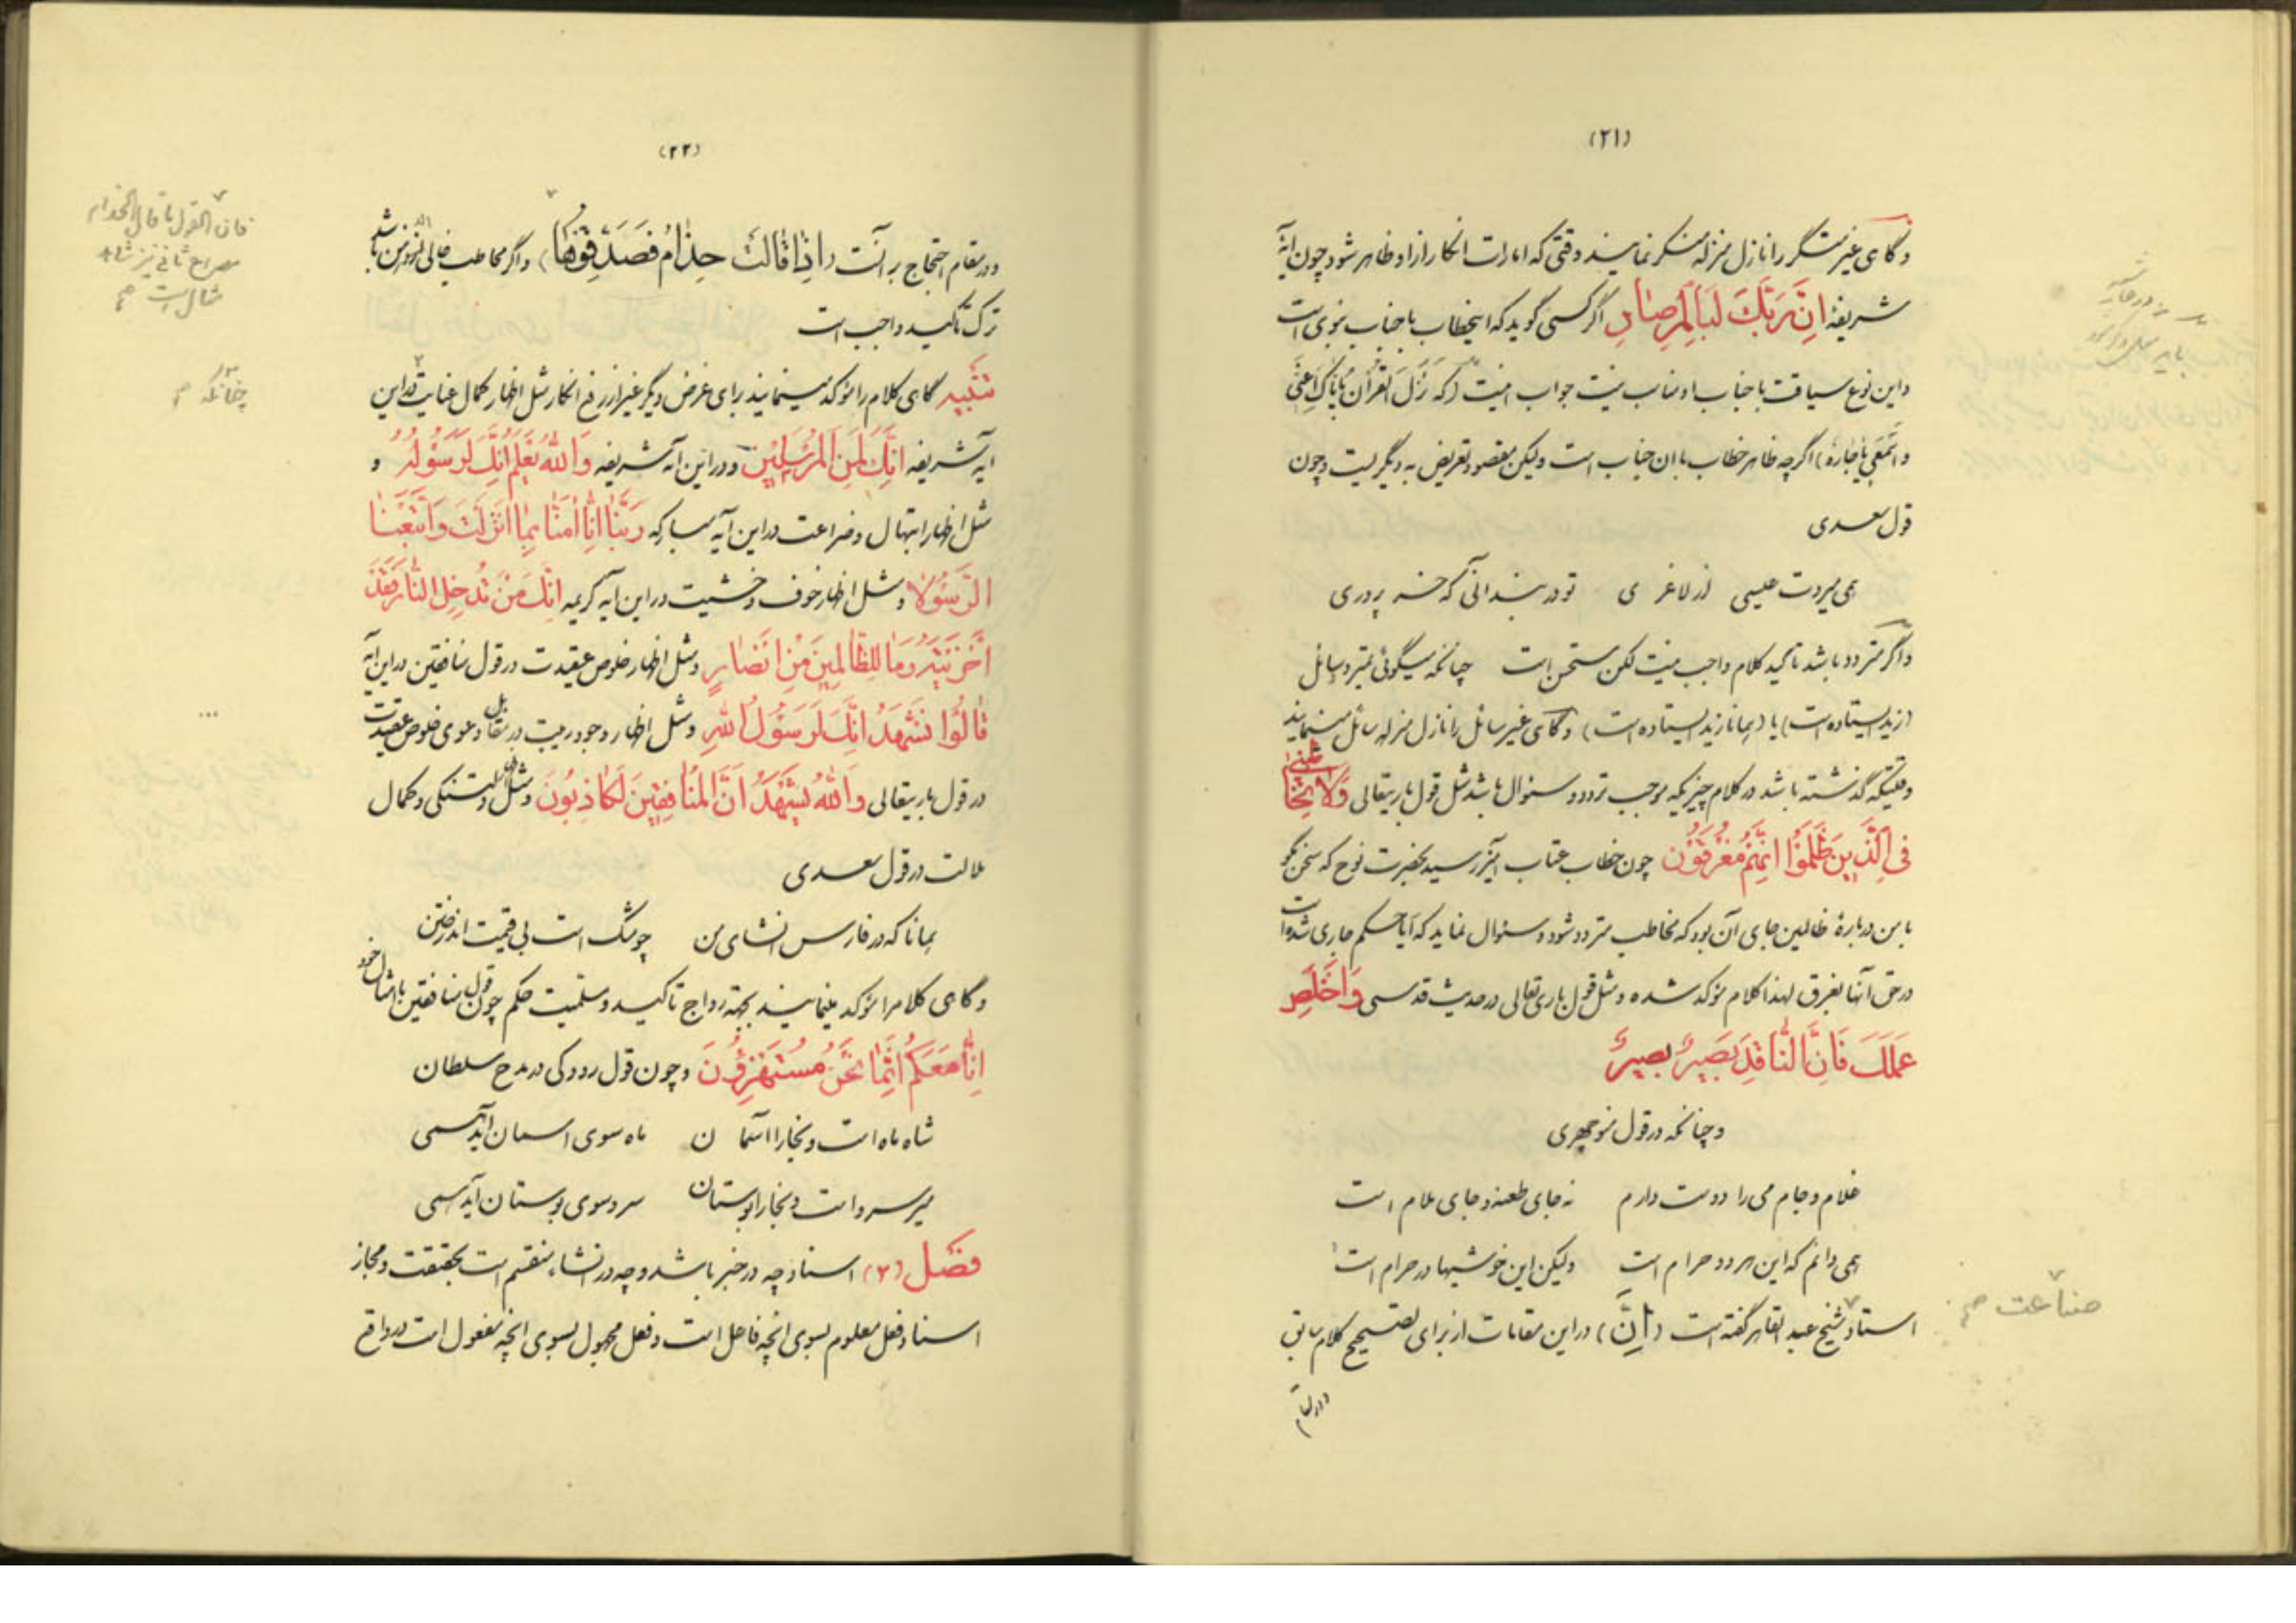 (۲۱)
و گاهی غیر منکر را نازل منزله منکر نمایند وقتی که امارات انکار از او ظاهر شود چون آیهٔ
شریفه اِنَّ رَبَّكَ لَبِالْمِرْصادِ اگر کسی گوید که اینخطاب با جناب نبوی است
و این نوع سیاقت با جناب او مناسب نیست جواب اینست که (نَزَلَ القُرآنُ بِاِیّاكِ اَعنی
و اسْمَعی یا جارَة) اگرچه ظاهر خطاب با ان جناب است ولیکن مقصود تعریض به دیگریست و چون
قول سعدی
همی میردت عیسی از لاغری تو در بند آنی که خر پروری
و اگر متردد باشد تأکید کلام واجب نیست لکن مستحسن است چنانچه میگوئی بمتردد و سائل
(زید ایستاده است) یا (همانا زید ایستاده است) و گاهی غیر سائل را نازل منزله سائل مینمایند
وقتیکه گذشته باشد در کلام چیزیکه موجب تردد و سئوال باشد مثل قول باریتعالی وَلا تُخاطِبْنی
فِی الَّذینَ ظَلَمُوا اِنَّهُمْ مُغْرَقُون چون خطاب عتاب آمیز رسید بحضرت نوح که سخن مگو
با من در بارهٔ ظالمین جای آن بود که مخاطب متردد شود و سئوال نماید که آیا حکم جاری شده است
در حق آنها بغرق لهذا کلام مؤکد شده و مثل قول باری تعالی در حدیث قدسی وَاَخْلِصْ
عَمَلَكَ فَاِنَّ النّاقِدَ بَصیرٌ بصیرٌ
و چنانچه در قول منوچهری
غلام و جام می را دوست دارم نه جای طعنه و جای ملام است
همی دانم که این هر دو حرام است ولیکن این خوشیها در حرام است
استاد شیخ عبد القاهر گفته است (اِنَّ) در این مقامات از برای تصحیح کلام سابق
صناعت
(۲۲)
و در مقام احتجاج بر آنست (اِذا قالَتْ حِذامُ فَصَدِّقُوها) و اگر مخاطب خالی الذهن باشد
ترک تاکید واجب است
تنبیه گاهی کلام را مؤکد مینمایند برای غرض دیگر غیر از رفع انکار مثل اظهار کمال عنایت در این
ایه شریفه اِنَّكَ لَمِنَ الْمُرْسَلینَ و در این آیه شریفه وَاللهُ یَعْلَمُ اِنَّكَ لَرَسُولُهُ و
مثل اظهار ابتهال و ضراعت در این آیه مبارکه رَبَّنا اِنَّنا امَنّا بِما اَنْزَلْتَ وَاتَّبَعْنَا
الرَّسُولا و مثل اظهار خوف و خشیت در این ایه کریمه اِنَّكَ مَنْ تُدْخِلِ النّارَ فَقَدْ
اَخْزَیْتَهُ وَما لِلظّالِمینَ مِنْ اَنْصارٍ و مثل اظهار خلوص عقیدت در قول منافقین در این آیه
قالُوا نَشْهَدُ اِنَّكَ لَرَسُولُ اللهِ و مثل اظهار وجود ریبت در مقابل دعوی خلوص عقیدت
در قول باریتعالی وَاللهُ یَشْهَدُ اِنَّ الْمُنافِقینَ لَكاذِبُونَ و مثل دلتنگی و کمال
ملالت در قول سعدی
همانا که در فارس انشای من چو مشک است بی قیمت اندر ختن
و گاهی کلام را مؤکد مینمایند بجهة رواج تاکید و سلمیت حکم چون قول منافقین با امثال خود
اِنّا مَعَكُمْ اِنَّما نَحْنُ مُسْتَهْزِؤُنَ و چون قول رودکی در مدح سلطان
شاه ماه است و بخارا آسمان ماه سوی اسمان آید همی
میر سرو است و بخارا بوستان سرو سوی بوستان آید همی
فصل (۲) اسناد چه در خبر باشد و چه در انشاء منقسم است بحقیقت و مجاز
اسناد فعل معلوم بسوی انچه فاعل است و فعل مجهول بسوی انچه مفعول است در واقع
فان القول ما قال الحذام
مصراع ثانی نیز شاهد
مثال است
چنانکه